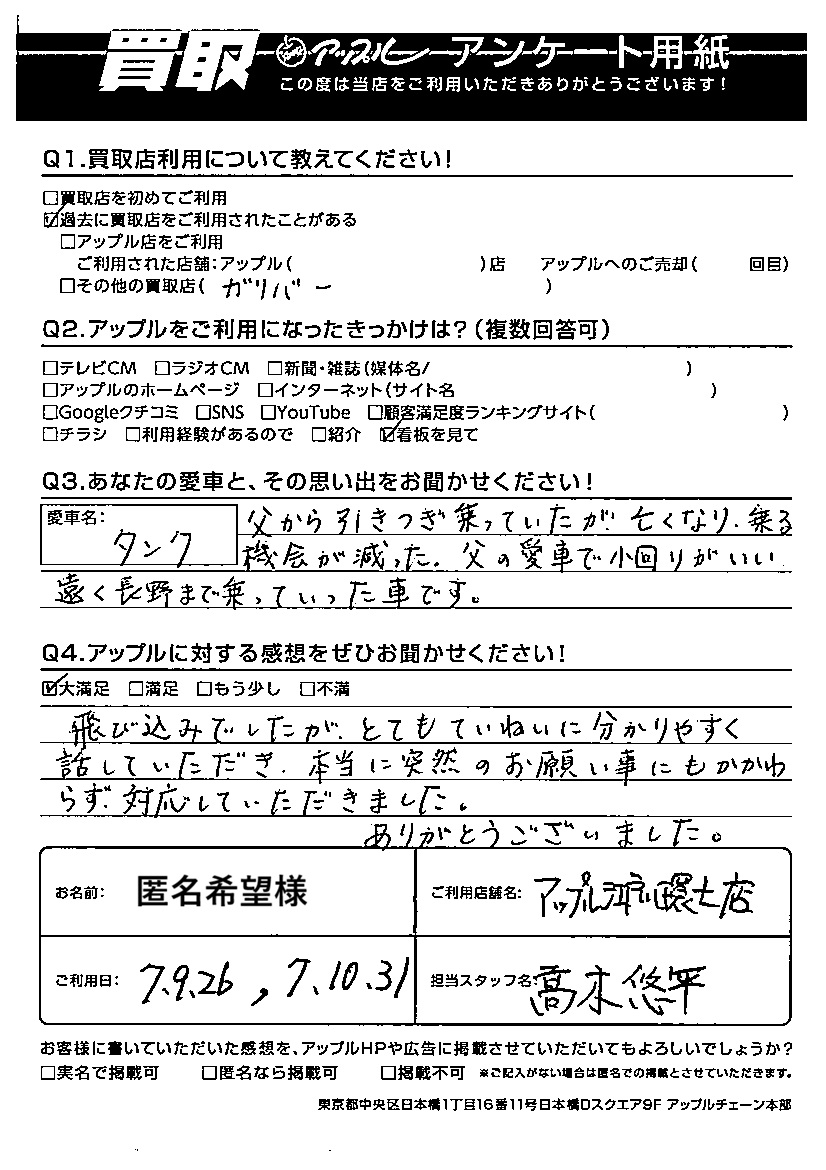 買取 アップル アンケート用紙
この度は当店をご利用いただきありがとうございます!
Q1.買取店利用について教えてください!
□買取店を初めてご利用
☑過去に買取店をご利用されたことがある
□アップル店をご利用
ご利用された店舗:アップル( )店 アップルへのご売却( 回目)
□その他の買取店( ガリバー )
Q2.アップルをご利用になったきっかけは?(複数回答可)
□テレビCM □ラジオCM □新聞・雑誌(媒体名/ )
□アップルのホームページ □インターネット(サイト名 )
□Googleクチコミ □SNS □YouTube □顧客満足度ランキングサイト( )
□チラシ □利用経験があるので □紹介 ☑看板を見て
Q3.あなたの愛車と、その思い出をお聞かせください!
愛車名: タンク
父から引きつぎ乗っていたが亡くなり、乗る
機会が減った。父の愛車で小回りがいい
遠く長野まで乗っていった車です。
Q4.アップルに対する感想をぜひお聞かせください!
☑大満足 □満足 □もう少し □不満
飛び込みでしたが、とてもていねいに分かりやすく
話していただき、本当に突然のお願い事にもかかわ
らず、対応していただきました。
ありがとうございました。
お名前: 匿名希望様 ご利用店舗名: アップル江戸川環七店
ご利用日: 7.9.26 , 7.10.31 担当スタッフ名: 高木悠平
お客様に書いていただいた感想を、アップルHPや広告に掲載させていただいてもよろしいでしょうか?
□実名で掲載可 □匿名なら掲載可 □掲載不可 ※ご記入がない場合は匿名での掲載とさせていただきます。
東京都中央区日本橋1丁目16番11号日本橋Dスクエア9F アップルチェーン本部